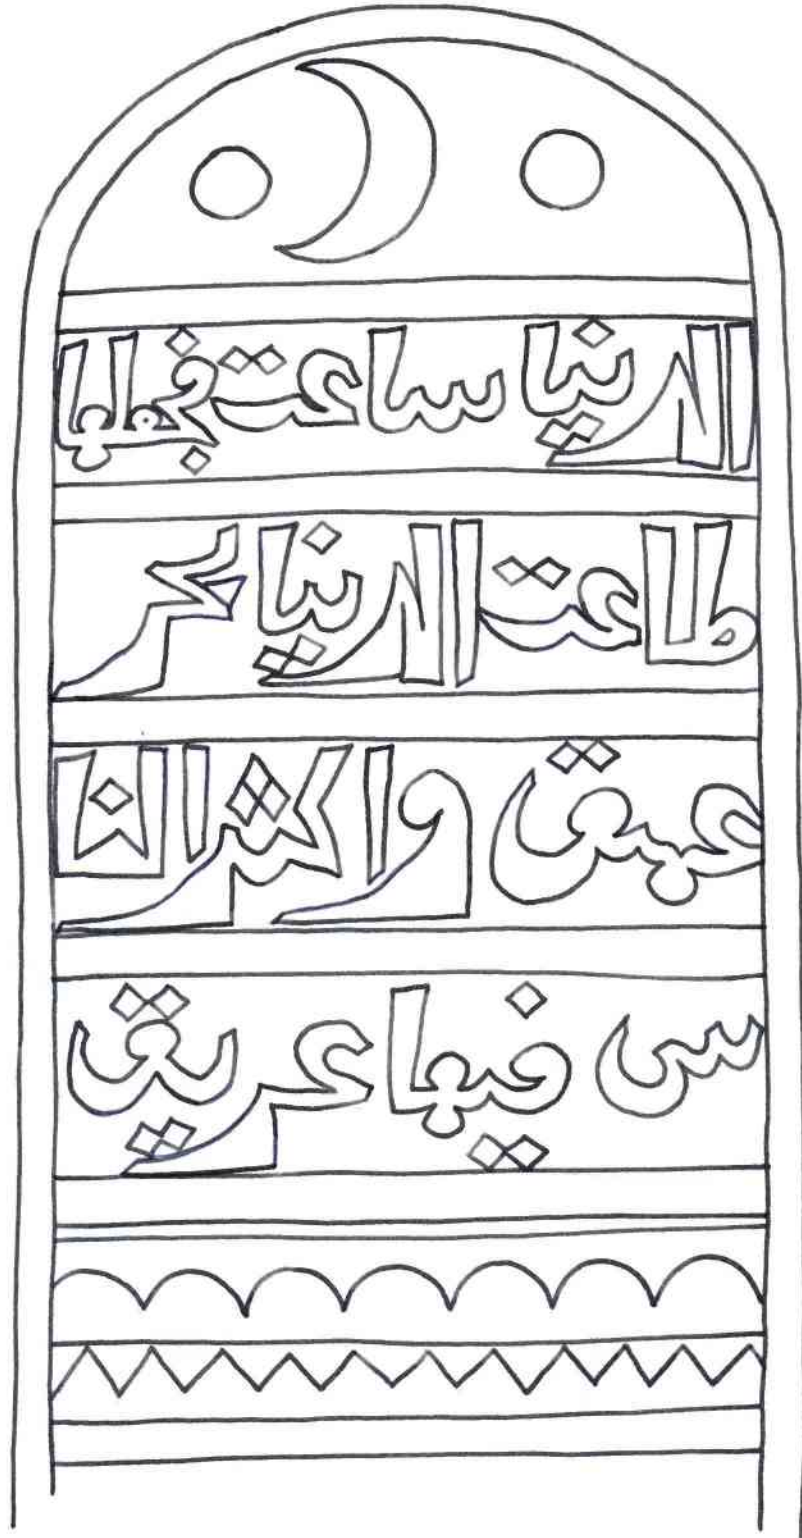 الدنيا ساعت فجعلها
طاعت الدنيا بحر
عميق واكثر النا
س فيها عريق